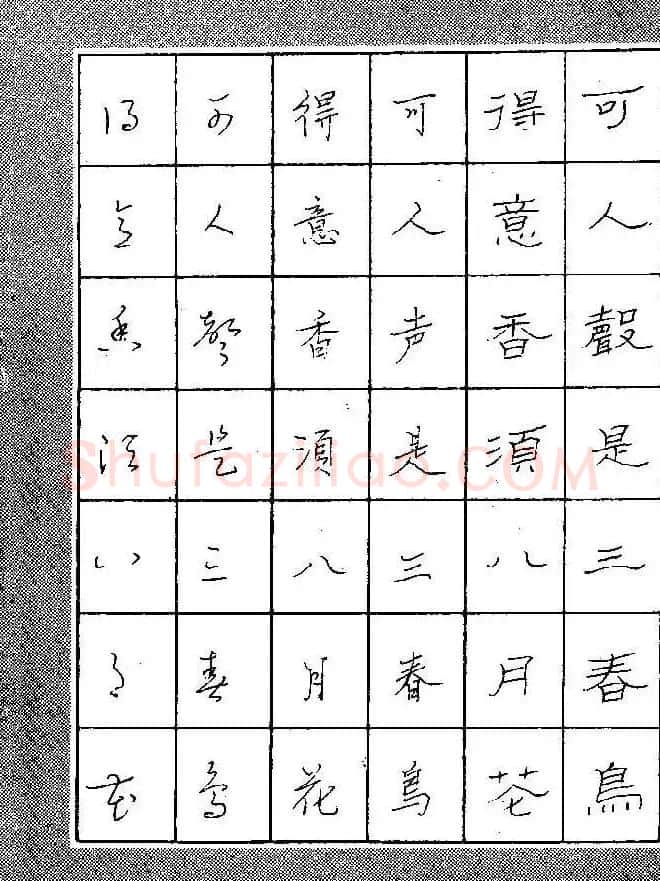 可人聲是三春鳥
得意香湏八月花
可人声是三春鳥
得意香湏八月花
可人聲是三春鳥
得意香湏八月花
Shufaziliao.COM